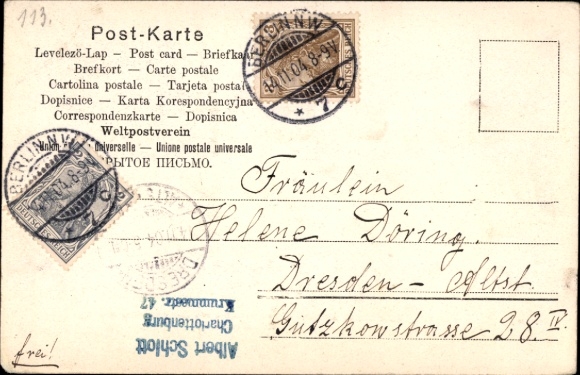 113.
Post-Karte
Levelező-Lap — Post card — Briefkaart
Brefkort — Carte postale
Cartolina postale — Tarjeta postal
Dopisnice — Karta Korespondencyjna
Correspondenzkarte — Dopisnica
Weltpostverein
Union postale universelle — Unione postale universale
ОТКРЫТОЕ ПИСЬМО.
BERLIN NW
11.04.8-9V
* 7 c
BERLIN NW
11.04.8-9V
* 7 c
DEUTSCHES REICH
DRESDEN
Fräulein
Helene Döring.
Dresden - Altst.
Gutzkowstrasse 28 IV.
Albert Schlott
Charlottenburg
Krummestr. 47
frei!